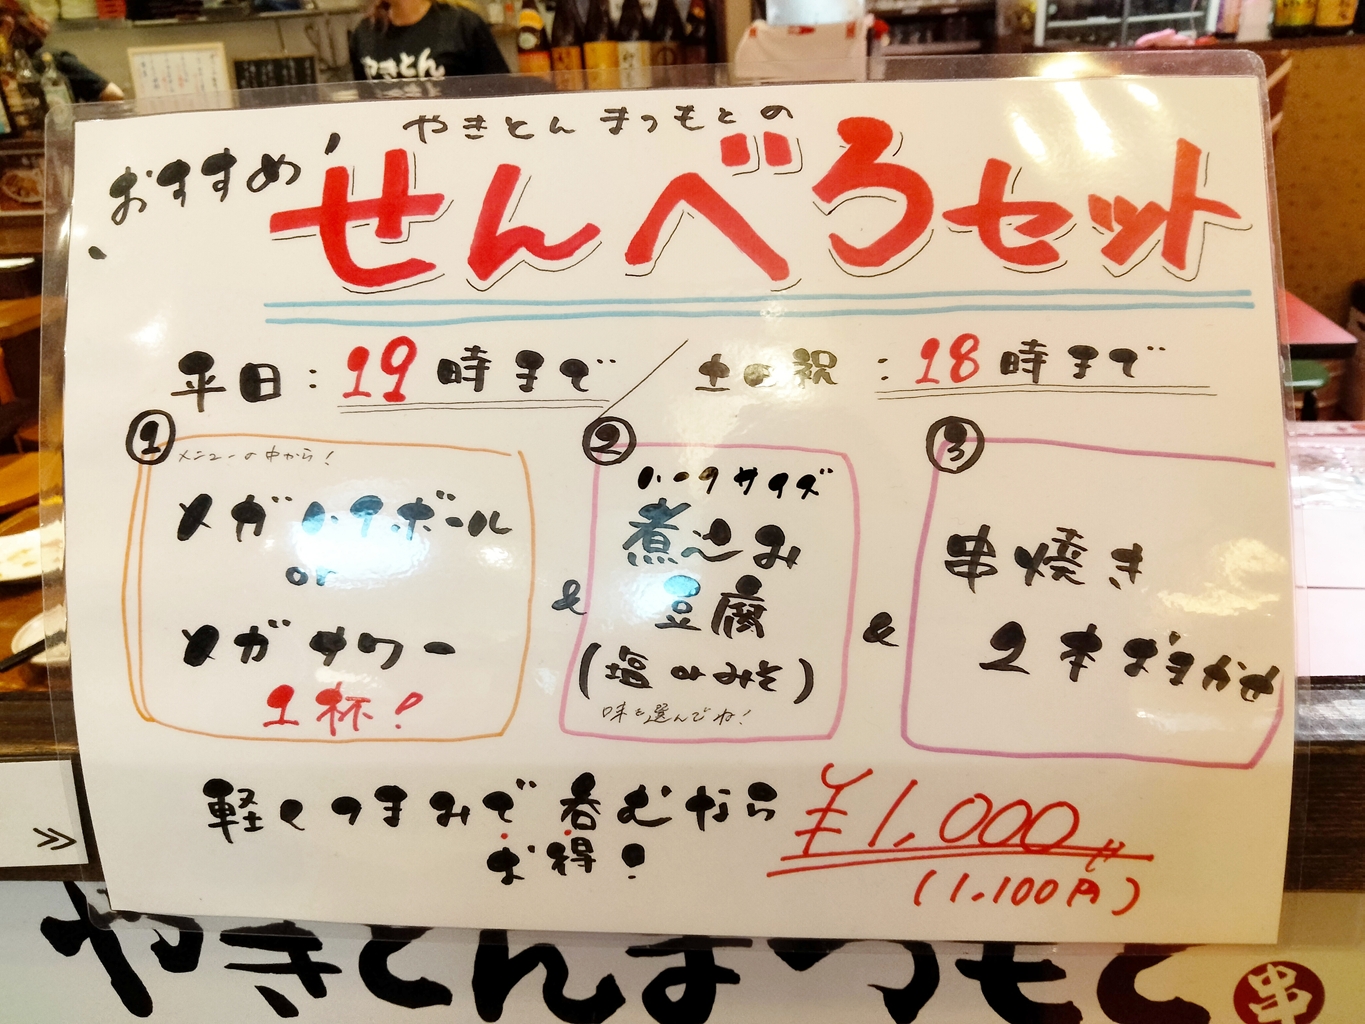 やきとん
やきとん まつもとの
おすすめ!
せんべろセット
平日:19時まで/土日祝:18時まで
① メニューの中から!
メガハイボール
or
メガサワー
1杯!
&
② ハーフサイズ
煮込み
豆腐
(塩 or みそ)
味を選んでね!
&
③
串焼き
2本おまかせ
軽くつまみで呑むなら
お得!
¥1,000
(1,100円)
やきとんまつもと
串